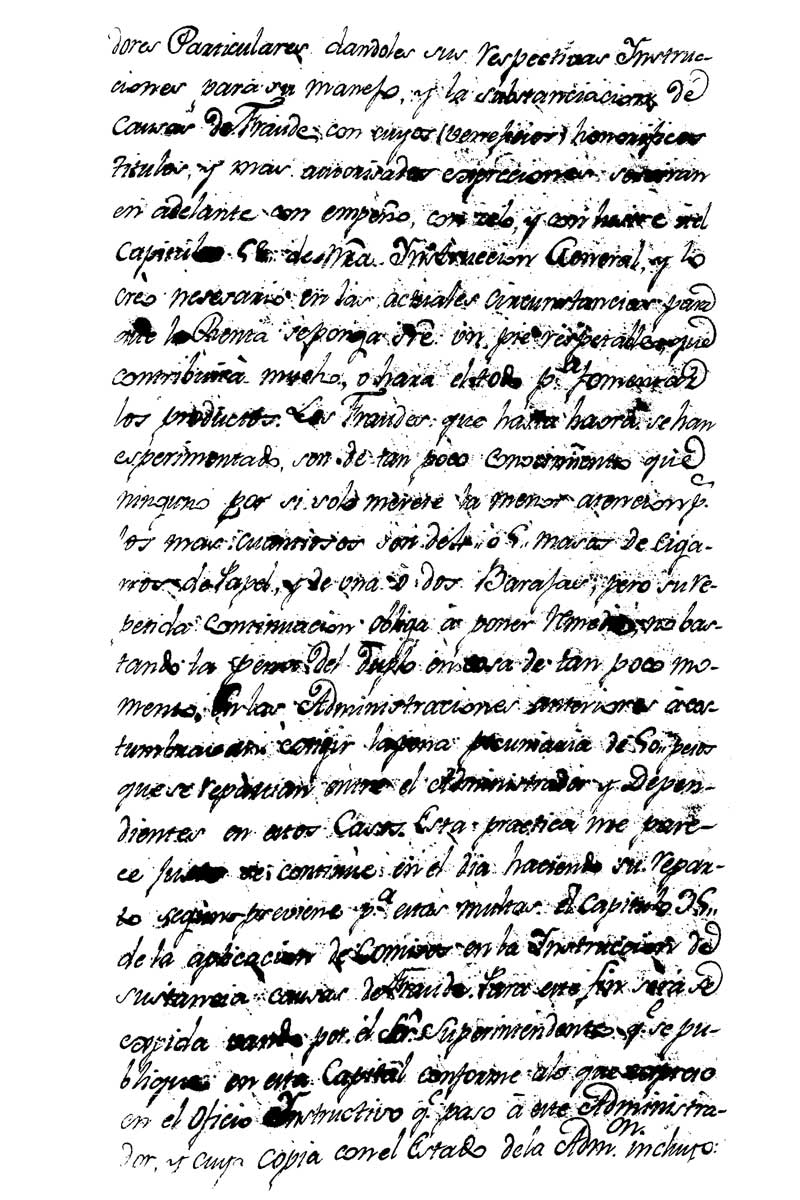 dores Particulares dandoles sus respectivas Instruc-
ciones para su manejo, y la substanciacion de
Causas de Fraude, con cuyos (veneficios) honorificos
titulos, y mas autorisadas expreciones serviran
en adelante con empeño, con zelo, y con
Capitulo 58.. de Ntra. Instruccion General, y lo
creo nesesario en las actuales circunstancias para
que la Renta se ponga sre. un pie respetable que
contribuirà mucho, ò hara el todo pa. fomentar
los productos. Los Fraudes que hasta haora se han
esperimentado, son de tan poco conocimiento que
ninguno por si solo merece la menor atencion p.
los mas cuantiosos son de 4.. ò 5.. masos de Ciga-
rros de Papel, y de una ò dos Barajas, pero su re-
petida continuacion obliga à poner remedio, no bas-
tando la pena del Duplo en cosa de tan poco mo-
mento. En las Administraciones anteriores àcos-
tumbraban èxigir la pena pecuniaria de 50.. pesos
que se repartian entre el Administrador y Depen-
dientes en estos Casos. Esta practica me pare-
ce justo se continùe en el dia haciendo su repar-
to segun previene pa. estas multas el Capitulo 35..
de la aplicacion de Comisos en la Instruccion de
sustancia causas de Fraude. Para este fin serà se
expida vando por el Sr. Superintendente qe. se pu-
blique en esta Capital conforme a lo que expreso
en el Oficio Instructivo qe. paso à este Administra-
dor, y cuya copia con el Estado de la Admon. incluyo: